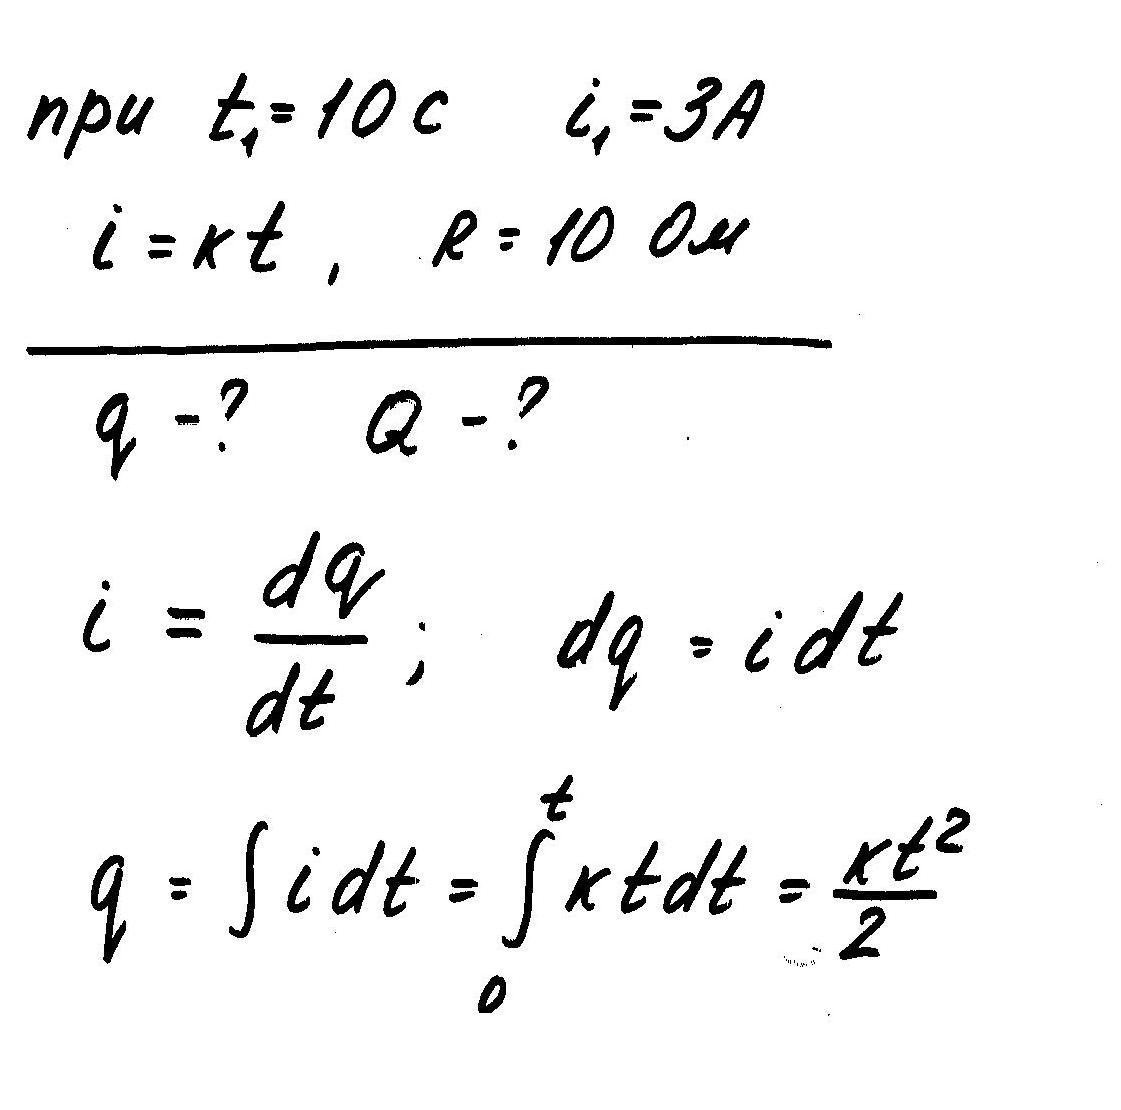 при t₁ = 10 с i₁ = 3А
i = кt , R = 10 Ом
q - ? Q - ?
i = dq/dt ; dq = i dt
q = ∫ i dt = ∫₀ᵗ кt dt = кt²/2